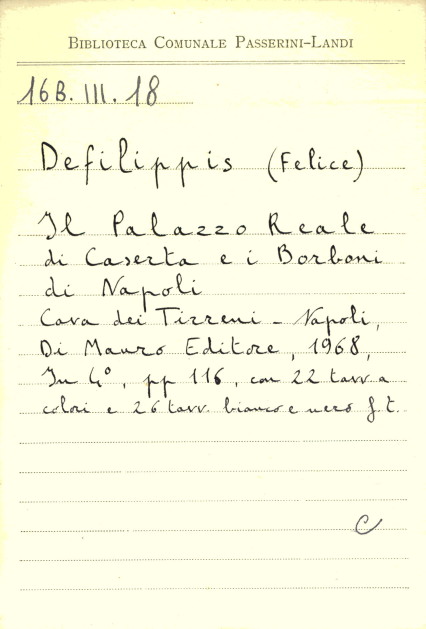 BIBLIOTECA COMUNALE PASSERINI-LANDI
16B. III. 18
Defilippis (Felice)
Il Palazzo Reale
di Caserta e i Borboni
di Napoli
Cava dei Tirreni - Napoli,
Di Mauro Editore, 1968,
In 4°, pp 116, con 22 tavv. a
colori e 26 tavv. bianco e nero f. t.
C